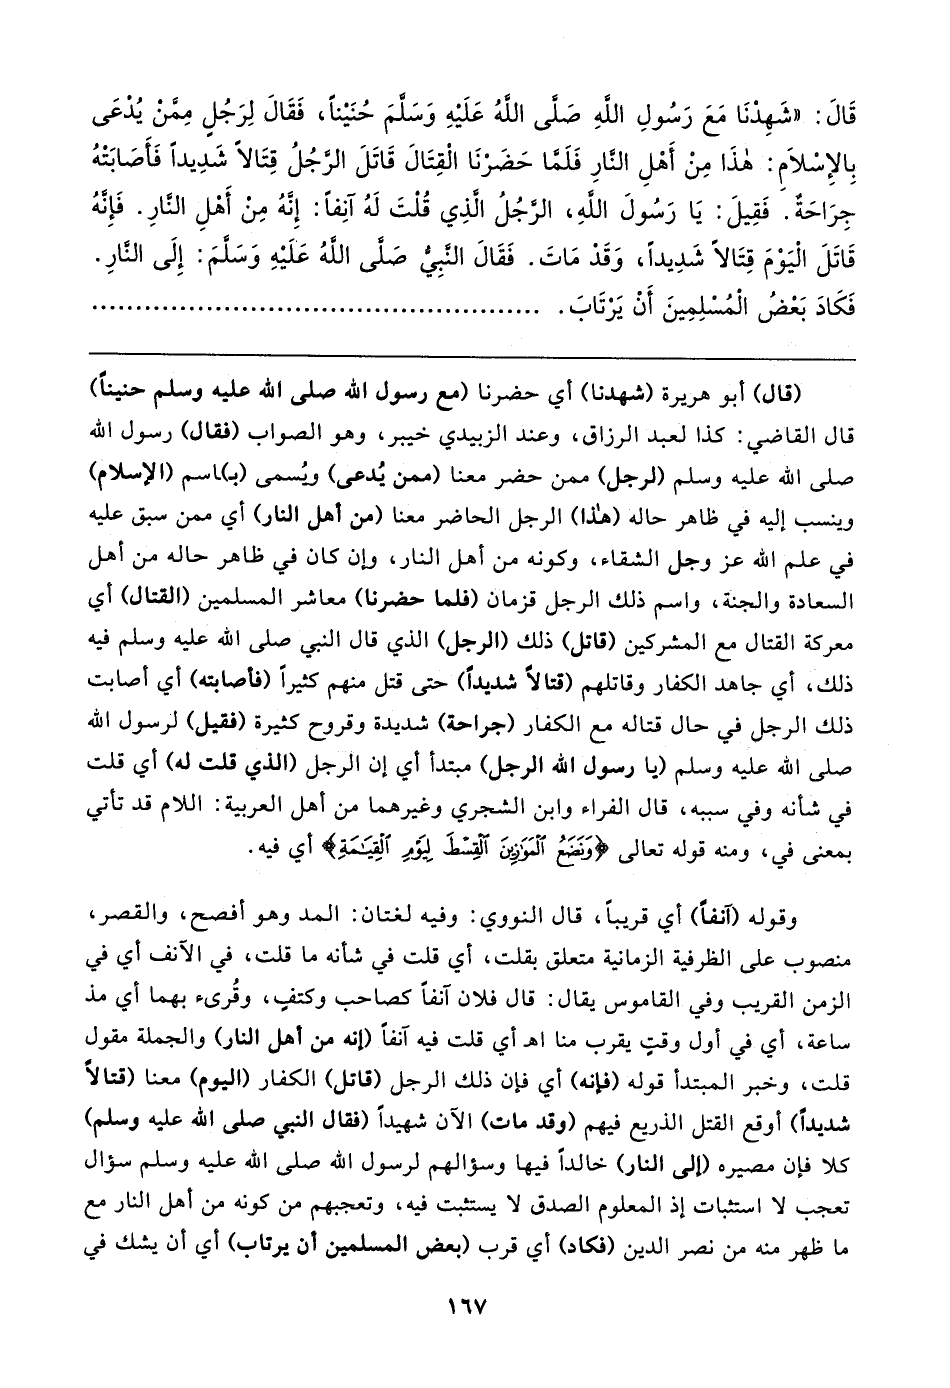 قَالَ: «شَهِدْنَا مَعَ رَسُولِ اللَّهِ صَلَّى اللَّهُ عَلَيْهِ وَسَلَّمَ حُنَيْناً، فَقَالَ لِرَجُلٍ مِمَّنْ يُدْعَى
بِالإِسْلاَمِ: هٰذَا مِنْ أَهْلِ النَّارِ فَلَمَّا حَضَرْنَا الْقِتَالَ قَاتَلَ الرَّجُلُ قِتَالاً شَدِيداً فَأَصَابَتْهُ
جِرَاحَةٌ. فَقِيلَ: يَا رَسُولَ اللَّهِ، الرَّجُلُ الَّذِي قُلْتَ لَهُ آنِفاً: إِنَّهُ مِنْ أَهْلِ النَّارِ. فَإِنَّهُ
قَاتَلَ الْيَوْمَ قِتَالاً شَدِيداً، وَقَدْ مَاتَ. فَقَالَ النَّبِيُّ صَلَّى اللَّهُ عَلَيْهِ وَسَلَّمَ: إِلَى النَّارِ.
فَكَادَ بَعْضُ الْمُسْلِمِينَ أَنْ يَرْتَابَ. ................................................
(قال) أبو هريرة (شهدنا) أي حضرنا (مع رسول الله صلى الله عليه وسلم حنيناً)
قال القاضي: كذا لعبد الرزاق، وعند الزبيدي خيبر، وهو الصواب (فقال) رسول الله
صلى الله عليه وسلم (لرجل) ممن حضر معنا (ممن يُدعى) ويُسمى (بـ)ـاسم (الإسلام)
وينسب إليه في ظاهر حاله (هٰذا) الرجل الحاضر معنا (من أهل النار) أي ممن سبق عليه
في علم الله عز وجل الشقاء، وكونه من أهل النار، وإن كان في ظاهر حاله من أهل
السعادة والجنة، واسم ذلك الرجل قزمان (فلما حضرنا) معاشر المسلمين (القتال) أي
معركة القتال مع المشركين (قاتل) ذلك (الرجل) الذي قال النبي صلى الله عليه وسلم فيه
ذلك، أي جاهد الكفار وقاتلهم (قتالاً شديداً) حتى قتل منهم كثيراً (فأصابته) أي أصابت
ذلك الرجل في حال قتاله مع الكفار (جراحة) شديدة وقروح كثيرة (فقيل) لرسول الله
صلى الله عليه وسلم (يا رسول الله الرجل) مبتدأ أي إن الرجل (الذي قلت له) أي قلت
في شأنه وفي سببه، قال الفراء وابن الشجري وغيرهما من أهل العربية: اللام قد تأتي
بمعنى في، ومنه قوله تعالى ﴿وَنَضَعُ ٱلْمَوَٰزِينَ ٱلْقِسْطَ لِيَوْمِ ٱلْقِيَٰمَةِ﴾ أي فيه.
وقوله (آنفاً) أي قريباً، قال النووي: وفيه لغتان: المد وهو أفصح، والقصر،
منصوب على الظرفية الزمانية متعلق بقلت، أي قلت في شأنه ما قلت، في الآنف أي في
الزمن القريب وفي القاموس يقال: قال فلان آنفاً كصاحب وكتفٍ، وقُرىء بهما أي مذ
ساعة، أي في أول وقتٍ يقرب منا اهـ أي قلت فيه آنفاً (إنه من أهل النار) والجملة مقول
قلت، وخبر المبتدأ قوله (فإنه) أي فإن ذلك الرجل (قاتل) الكفار (اليوم) معنا (قتالاً
شديداً) أوقع القتل الذريع فيهم (وقد مات) الآن شهيداً (فقال النبي صلى الله عليه وسلم)
كلا فإن مصيره (إلى النار) خالداً فيها وسؤالهم لرسول الله صلى الله عليه وسلم سؤال
تعجب لا استثبات إذ المعلوم الصدق لا يستثبت فيه، وتعجبهم من كونه من أهل النار مع
ما ظهر منه من نصر الدين (فكاد) أي قرب (بعض المسلمين أن يرتاب) أي أن يشك في
١٦٧